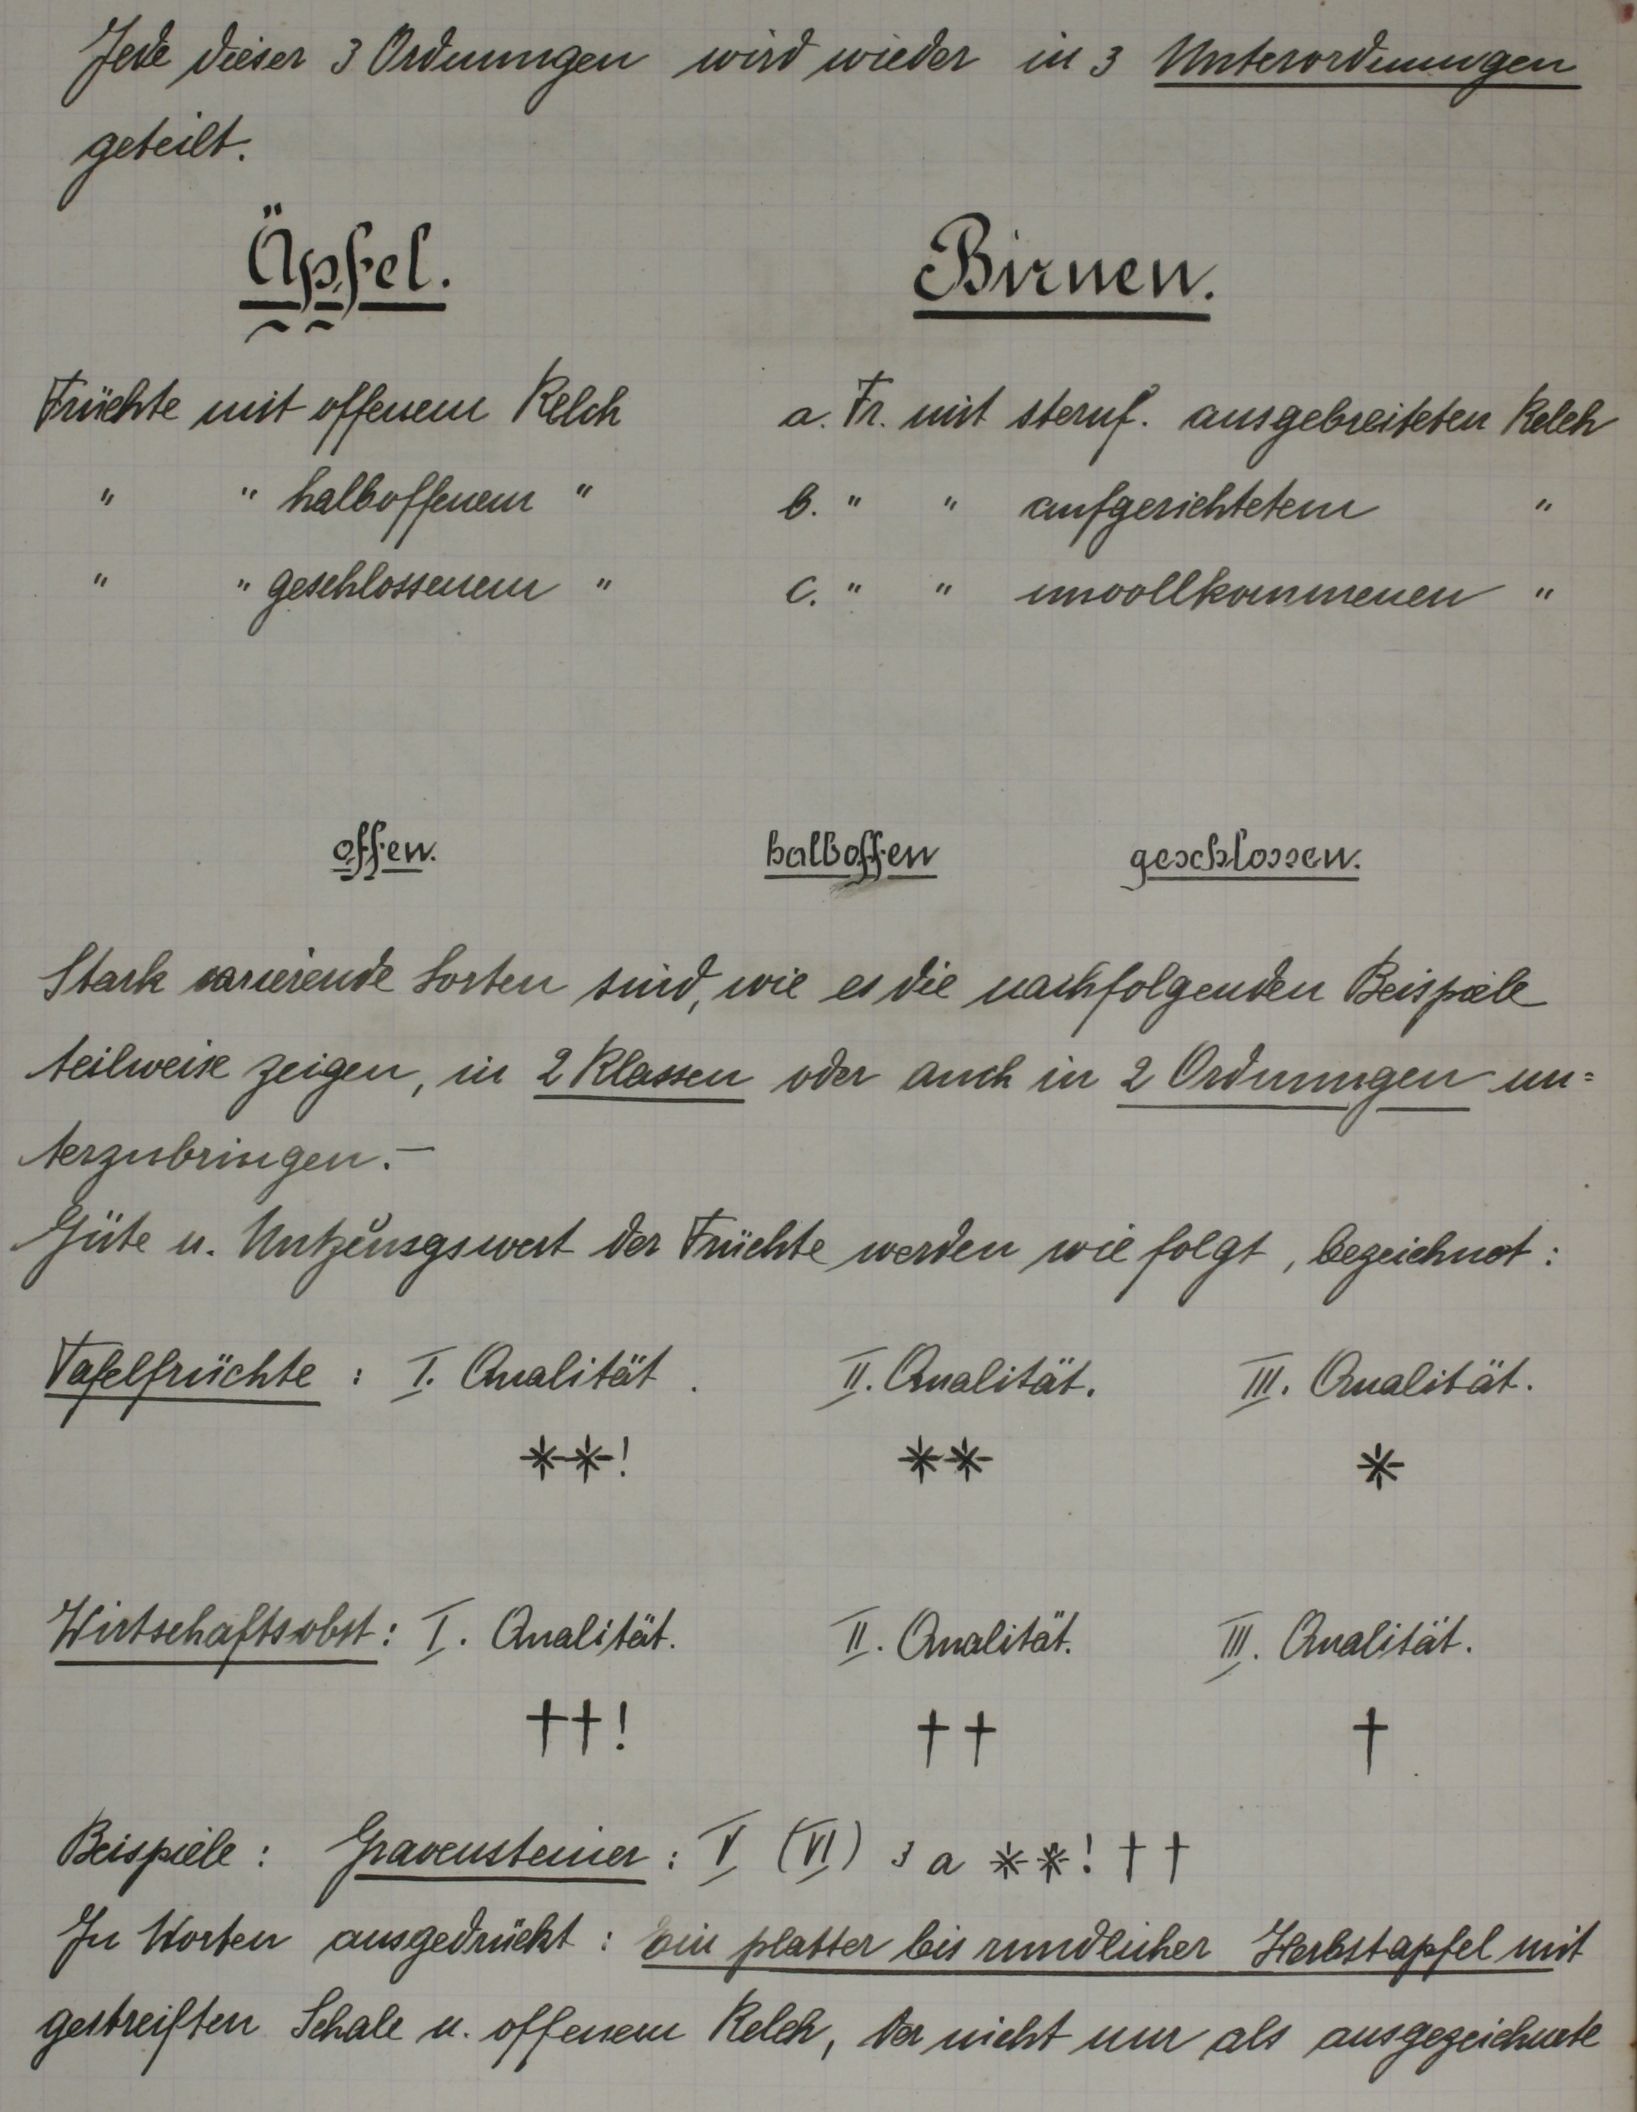 Jede dieser 3 Ordnungen wird wieder in 3 Unterordnungen
geteilt.
Äpfel. Birnen.
Früchte mit offenem Kelch a. Fr. mit sternf. ausgebreiteten Kelch
" " halboffenem " b. " " aufgerichtetem "
" " geschlossenem " c. " " unvollkommenen "
offen. halboffen geschlossen.
Stark varierende Sorten sind, wie es die nachfolgenden Beispiele
teilweise zeigen, in 2 Klassen oder auch in 2 Ordnungen un=
terzubringen.-
Güte u. Nutzungswert der Früchte werden wie folgt, bezeichnet:
Tafelfrüchte : I. Qualität . II. Qualität. III. Qualität.
**! ** *
Wirtschaftsobst: I. Qualität. II. Qualität. III. Qualität.
††! †† †
Beispiele : Gravensteiner : V (VI) 3 a **! ††
In Worten ausgedrückt : Ein platter bis rundlicher Herbstapfel mit
gestreiften Schale u. offenem Kelch, der nicht nur als ausgezeichnete